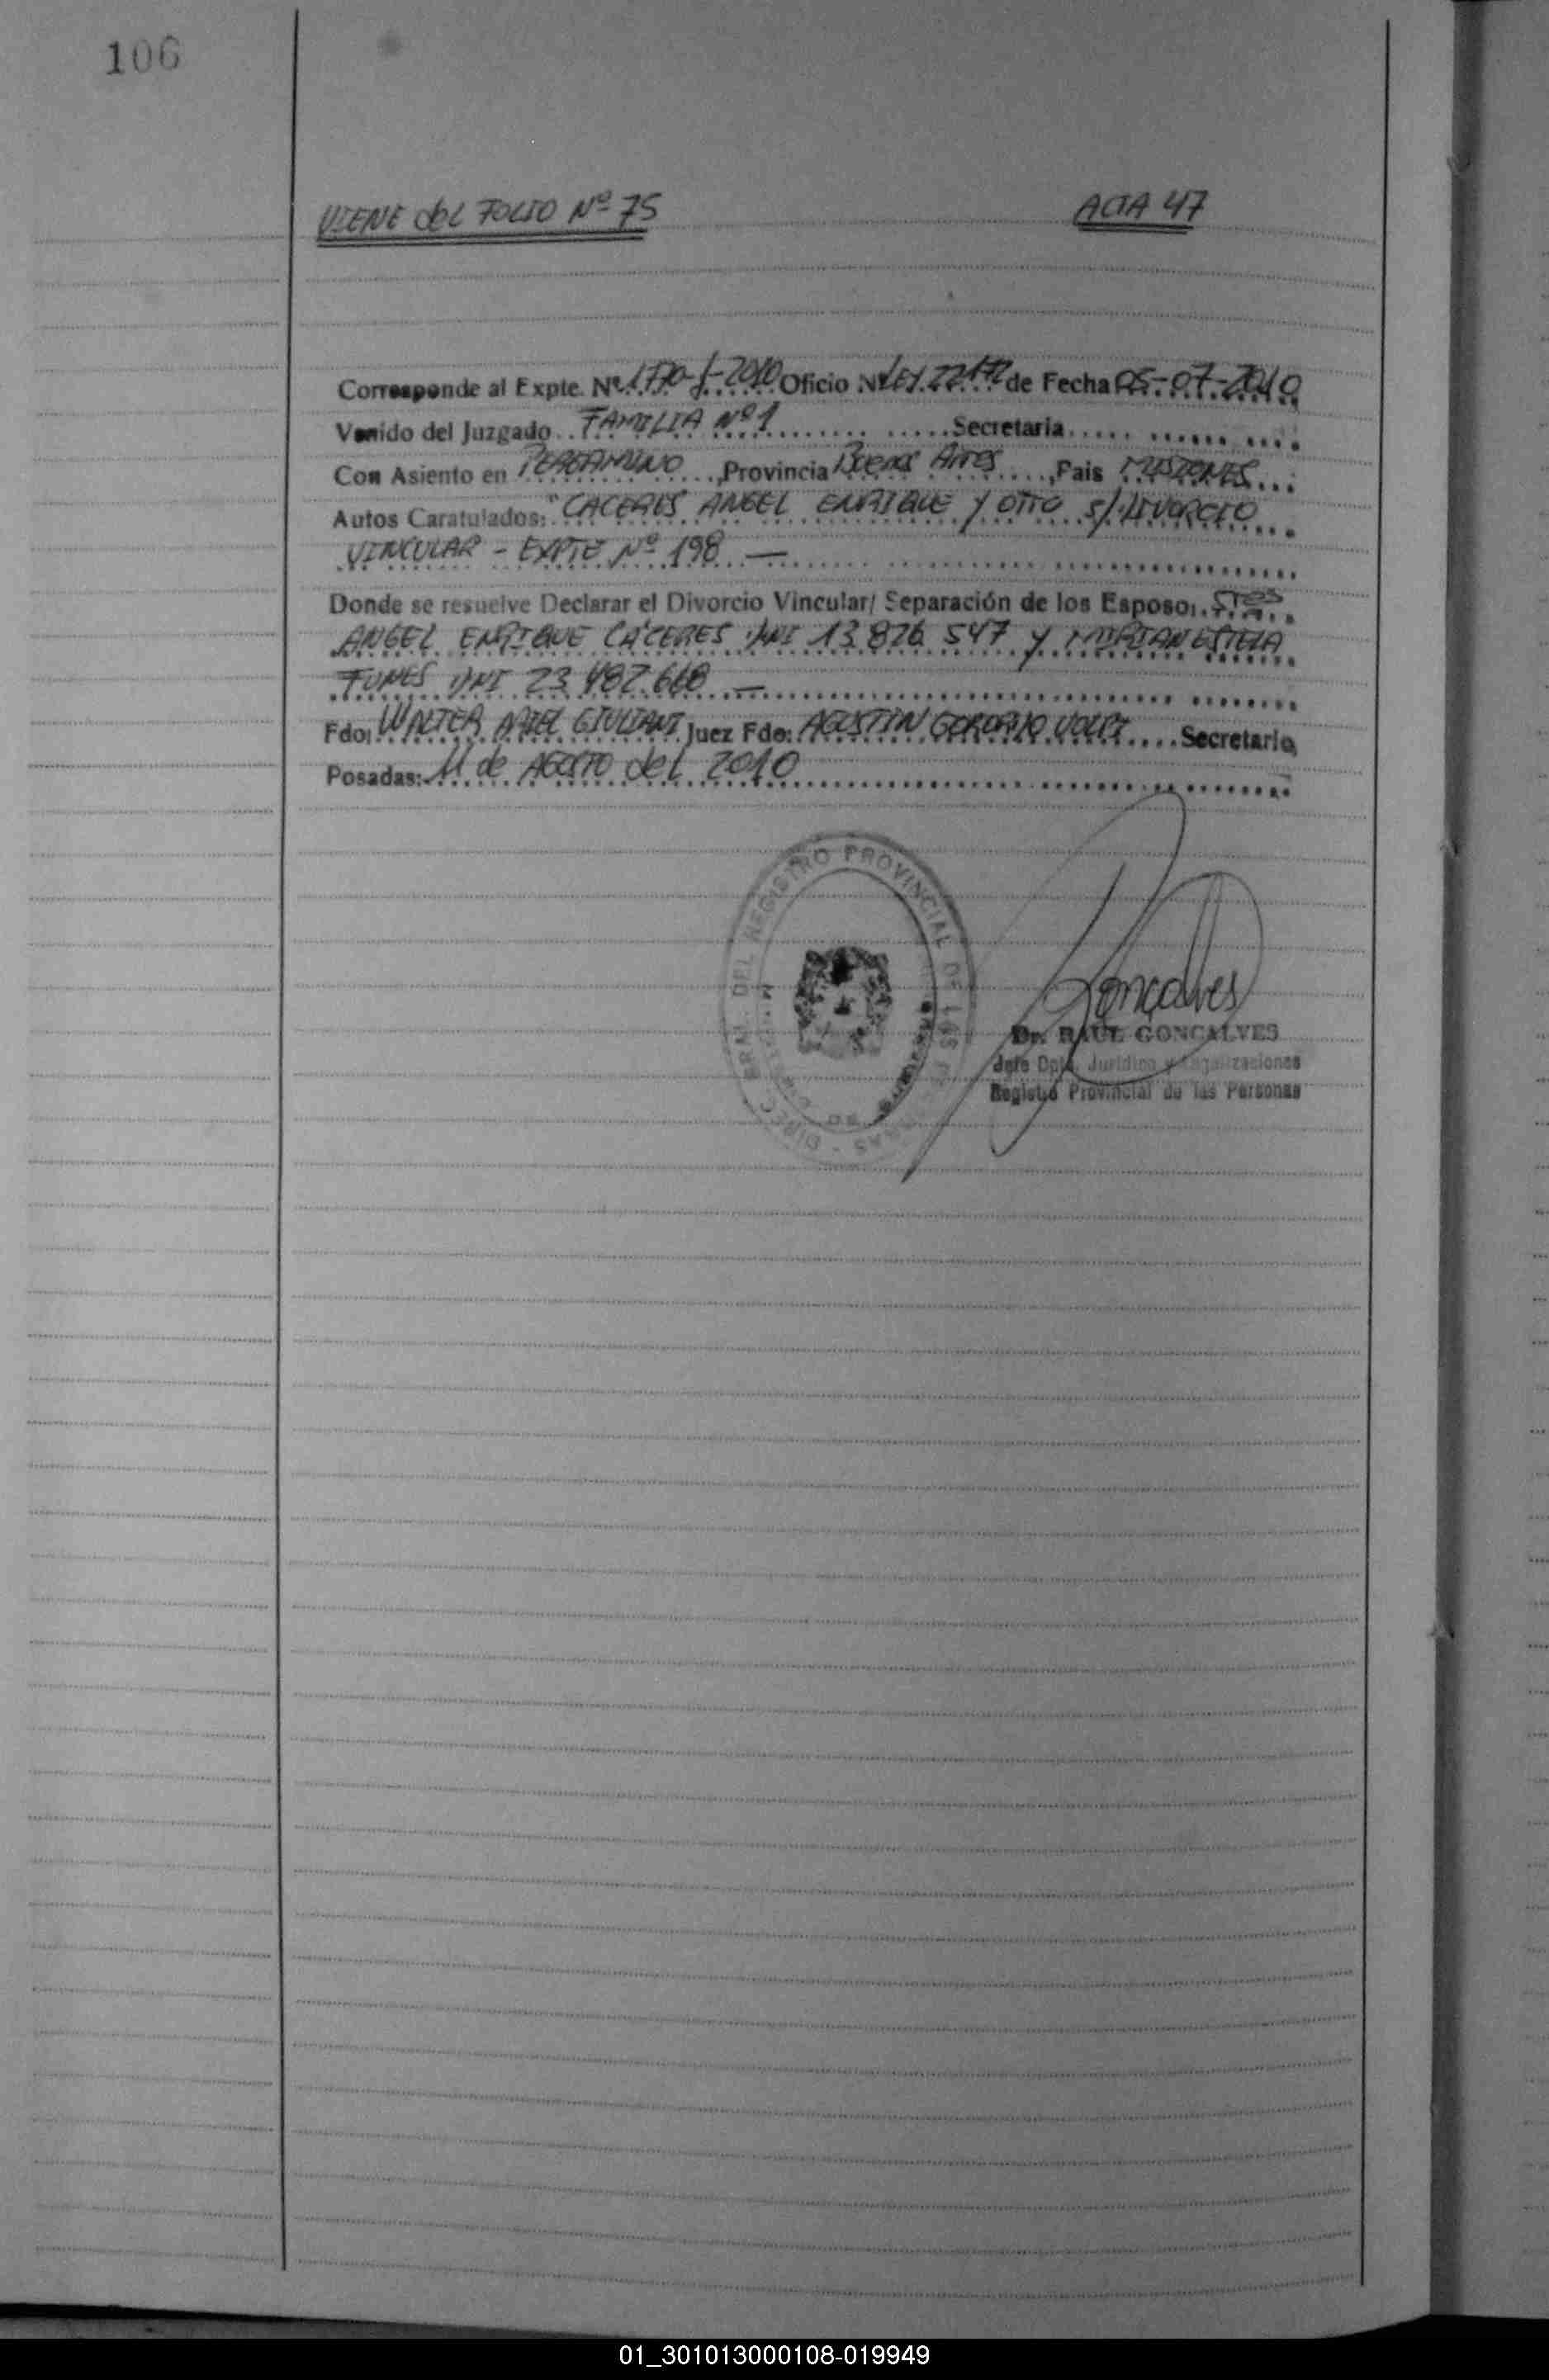 106
VIENE del FOLIO Nº 75 ACTA 47
Corresponde al Expte. Nº 1770-J-2010 Oficio Nº LEY 22172 de Fecha 05-07-2010
Venido del Juzgado FAMILIA Nº 1 Secretaria
Con Asiento en PERGAMINO, Provincia Buenos Aires, Pais MISIONES
Autos Caratulados: "CACERES ANGEL ENRIQUE Y OTRO S/ DIVORCIO
VINCULAR - EXPTE Nº 198 —
Donde se resuelve Declarar el Divorcio Vincular/ Separación de los Esposo: Sres
ANGEL ENRIQUE CÁCERES DNI 13 876 547 y MIRIAN ESTELA
FUNES DNI 23 482.668 —
Fdo: WALTER ARIEL GIULIANI Juez Fdo: AGUSTIN VOLPE Secretario,
Posadas: 11 de AGOSTO del 2010
DIREC GRAL DEL REGISTRO PROVINCIAL DE LAS PERSONAS
Gonçalves
Dr. RAUL GONCALVES
Jefe Dpto. Juridico y Legalizaciones
Registro Provincial de las Personas
01_301013000108-019949